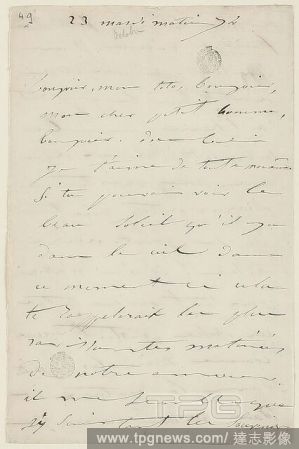 49
23 mardi matin
octobre
bonjour, mon toto, bonjour,
mon cher petit homme,
bonjour.
je t'aime de toute mon âme
Si tu pouvais voir le
beau soleil qu'il y a
dans le ciel dans
ce moment-ci cela
te rappelerait les plus
ravissantes matinées
de notre amour.
il me que
les
TPG
www.tpgnews.com / 達志影像